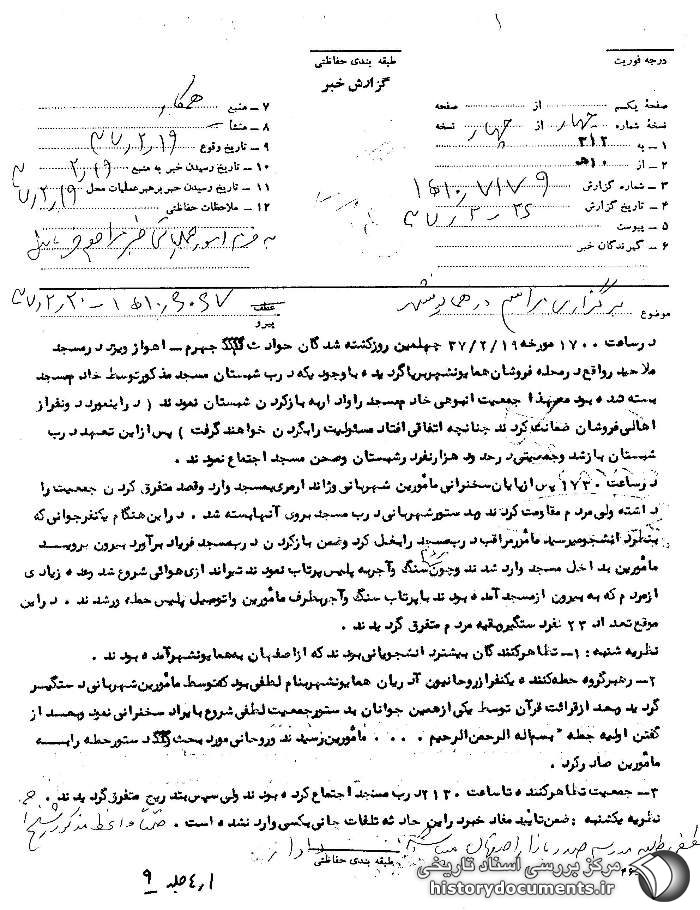 درجه فوریت
طبقه بندی حفاظتی
گزارش خبر
صفحه یکم از صفحه
نسخه شماره چهار از چهار نسخه
۱ – به ۳۱۲
۲ – از ۱۰ﻫ
۳ – شماره گزارش
۴ – تاریخ گزارش
۵ – پیوست
۶ – گیرندگان خبر
۷ – منبع همکار
۸ – منشأ
۹ – تاریخ وقوع ۳۷٫۲٫۱۹
۱۰ – تاریخ رسیدن خبر به منبع
۱۱ – تاریخ رسیدن خبر برهبر عملیات محل
۱۲ – ملاحظات حفاظتی
موضوع برگزاری مراسم در همایونشهر
عطف
پیرو
در ساعت ۱۷۰۰ مورخه ۳۷/۲/۱۹ چهلمین روز کشته شدگان حوادث جهرم – اهواز و یزد در مسجد
ملاحیدر واقع در محله فروشان همایونشهر برپا گردیده با وجودیکه درب شبستان مسجد مذکور توسط خادم مسجد
بسته شده بود معهذا جمعیت انبوهی خادم مسجد را وادار به باز کردن شبستان نمودند ( در اینمورد دو نفر از
اهالی فروشان ضمانت کردند چنانچه اتفاقی افتاد مسئولیت را بگردن خواهند گرفت ) پس از این تعهد درب
شبستان باز شد و جمعیتی در حدود هزار نفر در شبستان و صحن مسجد اجتماع نمودند .
در ساعت ۱۷۳۰ پس از پایان سخنرانی مأمورین شهربانی و ژاندارمری بمسجد وارد و قصد متفرق کردن جمعیت را
داشته ولی مردم مقاومت کردند و بدستور شهربانی درب مسجد بروی آنها بسته شد . در این هنگام یکنفر جوانی که
بنظر دانشجو میرسید مأمور مراقب درب مسجد را بغل کرد و ضمن باز کردن درب مسجد فریاد برآورد بیرون بروید
مأمورین بداخل مسجد وارد شدند و چون مردم سنگ و آجر به پلیس پرتاب نمودند تیراندازی هوائی شروع شد و عده زیادی
از مردم که به بیرون از مسجد آمده بودند با پرتاب سنگ و آجر بطرف مأمورین و اتومبیل پلیس حمله ور شدند . در این
موقع تعداد ۲۳ نفر دستگیر و بقیه مردم متفرق گردیدند .
نظریه شنبه : ۱ – تظاهرکنندگان بیشتر دانشجویانی بودند که از اصفهان به همایونشهر آمده بودند .
۲ – رهبر گروه حمله کننده یکنفر از روحانیون آدریان همایونشهر بنام لطفی بود که توسط مأمورین شهربانی دستگیر
گردید و بعد از قرائت قرآن توسط یکی از همین جوانان بدستور جمعیت لطفی شروع بایراد سخنرانی نمود و بعد از
گفتن اولیه جمله " بسم اله الرحمن الرحیم . . . . مأمورین رسیدند و روحانی مورد بحث دستور حمله را به
مأمورین صادر کرد .
۳ – جمعیت تظاهرکننده تا ساعت ۲۱۳۰ درب مسجد اجتماع کرده بودند ولی سپس بتدریج متفرق گردیدند .
نظریه یکشنبه : ضمن تأیید مفاد خبر در این حادثه تلفات جانی بکسی وارد نشده است . ضمناً واعظ مذکور شیخ
طبقه بندی حفاظتی
مرکز بررسی اسناد تاریخی
historydocuments.ir